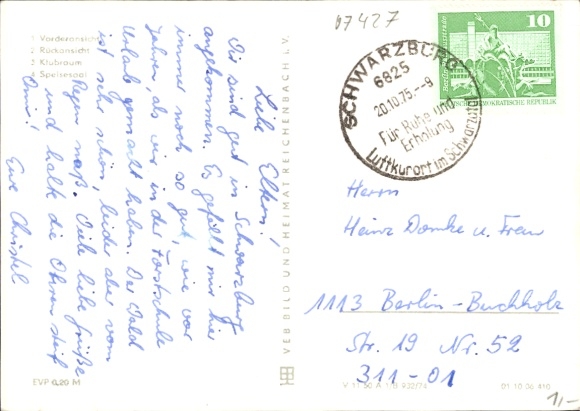 07427
1 Vorderansicht
2 Rückansicht
3 Klubraum
4 Speisesaal
Liebe Eltern!
Wir sind gut in Schwarzburg
angekommen. Es gefällt mir hier
immer noch so gut, wie vor
Jahren, als wir in der Forstschule
Urlaub gemacht haben. Der Wald
ist sehr schön, leider aber vom
Regen naß. Viele liebe Grüße
und halte die Ohren steif
Omi!
Eure Christel
VEB BILD UND HEIMAT REICHENBACH i. V.
EVP 0,20 M
V 11 50 A 1 B 932/74
01 10 06 410
SCHWARZBURG
6825
20.10.75.--9
Für Ruhe und
Erholung
Luftkurort im Schwarzatal
10
DEUTSCHE DEMOKRATISCHE REPUBLIK
Herrn
Heinz Domke u. Frau
1113 Berlin-Buchholz
Str. 19 Nr. 52
311-01
1,-